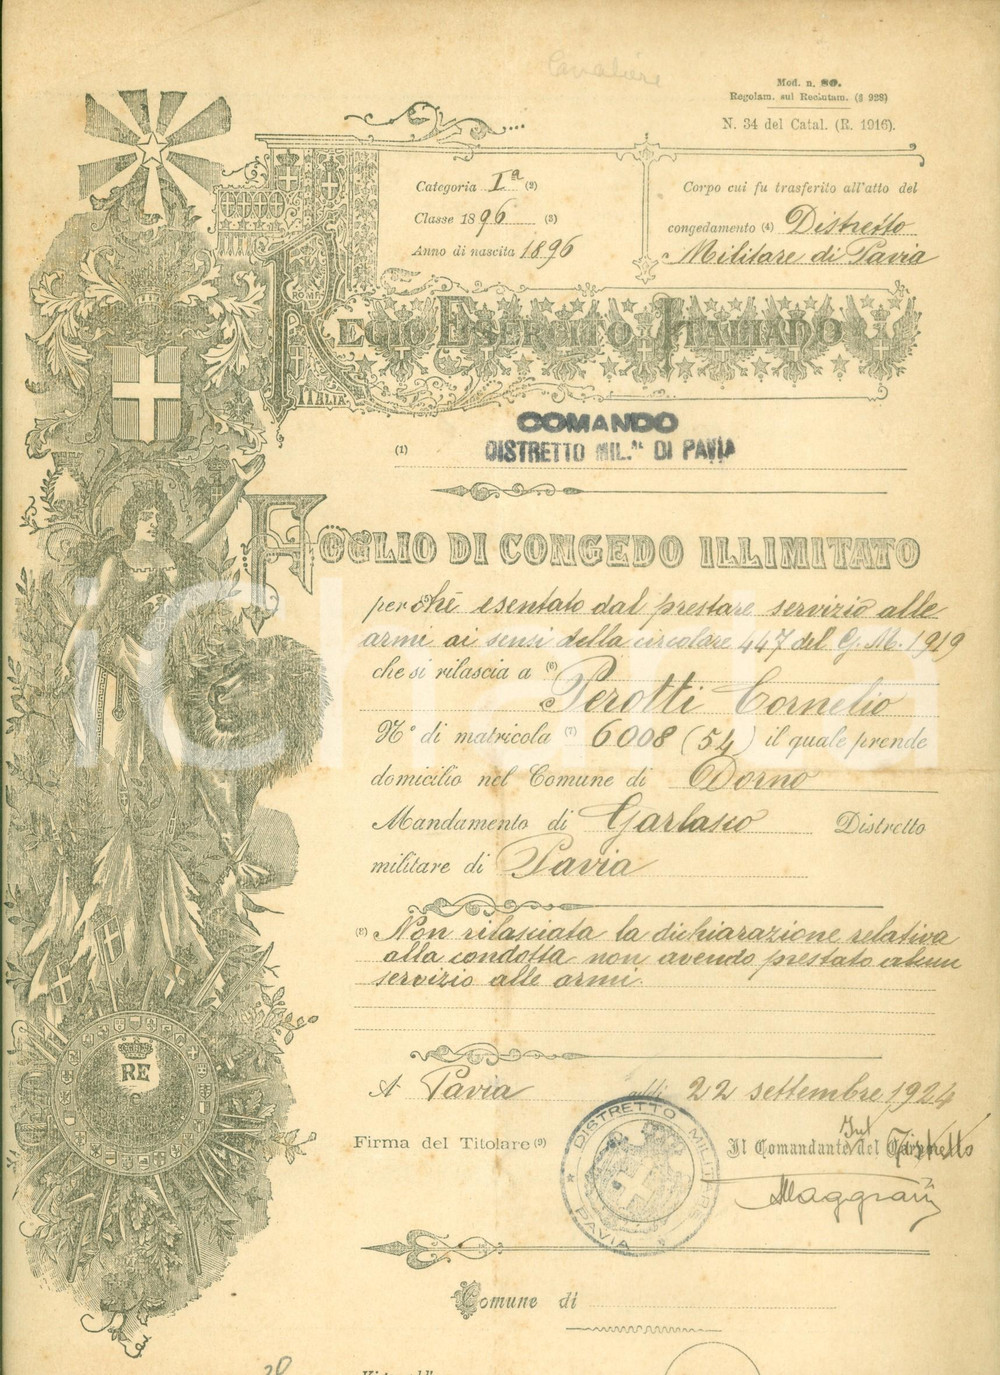 Cavaliere
Mod. n. 80.
Regolam. sul Reclutam. (§ 928)
N. 34 del Catal. (R. 1916).
Categoria Iª (2)
Classe 1896 (3)
Anno di nascita 1896
Corpo cui fu trasferito all'atto del
congedamento (4) Distretto
Militare di Pavia
ROMA
REGIO ESERCITO ITALIANO
ITALIA
COMANDO
(1) DISTRETTO MIL.ᴬᴸ DI PAVIA
FOGLIO DI CONGEDO ILLIMITATO
per (5) chè esentato dal prestare servizio alle
armi ai sensi della circolare 447 del G. M. 1919
che si rilascia a (6) Perotti Cornelio
N° di matricola (7) 6008 (54) il quale prende
domicilio nel Comune di Dorno
Mandamento di Garlasco Distretto
militare di Pavia
(8) Non rilasciata la dichiarazione relativa
alla condotta non avendo prestato alcun
servizio alle armi.
RE
A Pavia addì 22 settembre 1924
Firma del Titolare (9)
Il Comandante del Distretto
DISTRETTO MILITARE
PAVIA
Comune di
iCharta
20